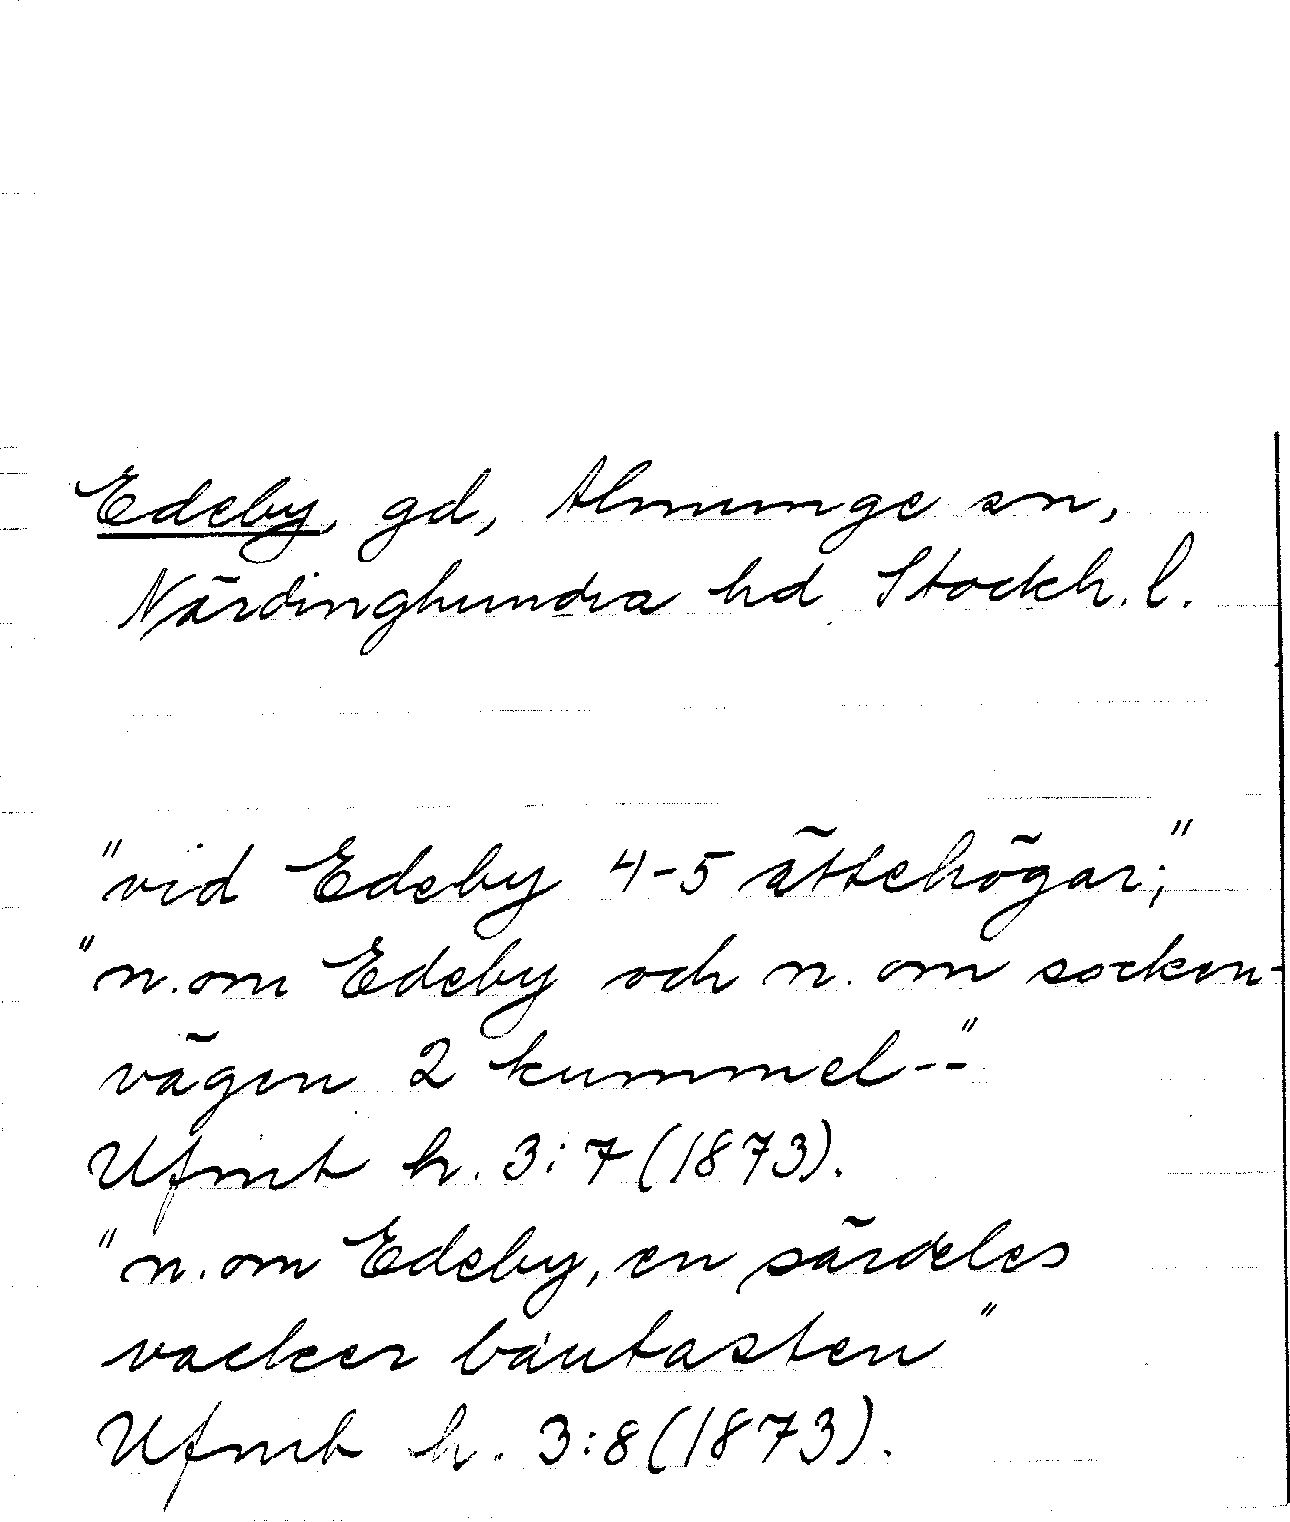 Edeby, gd, Almunge sn,
Närdinghundra hd Stockh. l.
"vid Edeby 4-5 ättehögar;"
"n. om Edeby och n. om socken-
vägen 2 kummel--"
Ufmt h. 3:7 (1873).
"n. om Edeby, en särdeles
vacker bautasten"
Ufmt h. 3:8 (1873).